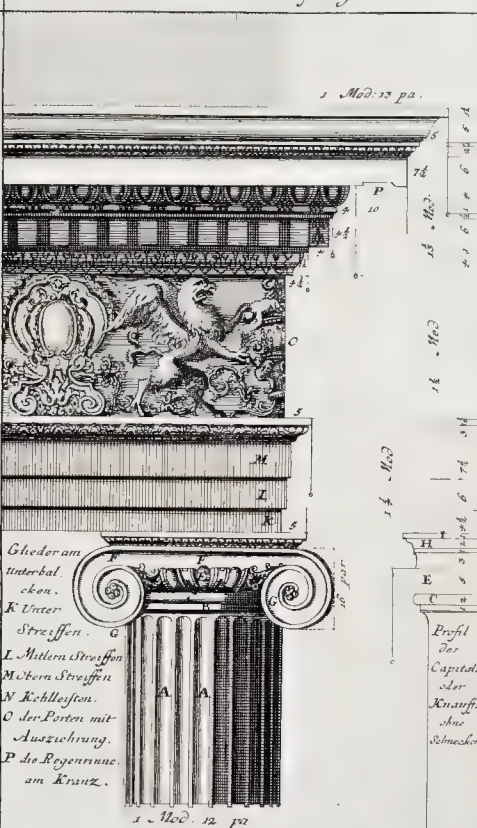 1 Mod: 13 pa.
5
7½
P
10
4
4½
4½
1⅓ Mod
O
1½ Mod
5
M
L
K
5
1¼ Mod
Glieder am
unterbal
cken.
K Unter
Streiffen.
L Mitlern Streiffen
M Obern Streiffen
N Kehlleisten.
O der Porten mit
Ausziehrung.
P die Regenrinne
am Kranz.
F
F
G
B
G
G
16 par
A
A
I
H
E
C
Profil
des
Capitäls
oder
Knauffs
ohne
Schnecken
1 Mod. 12 pa